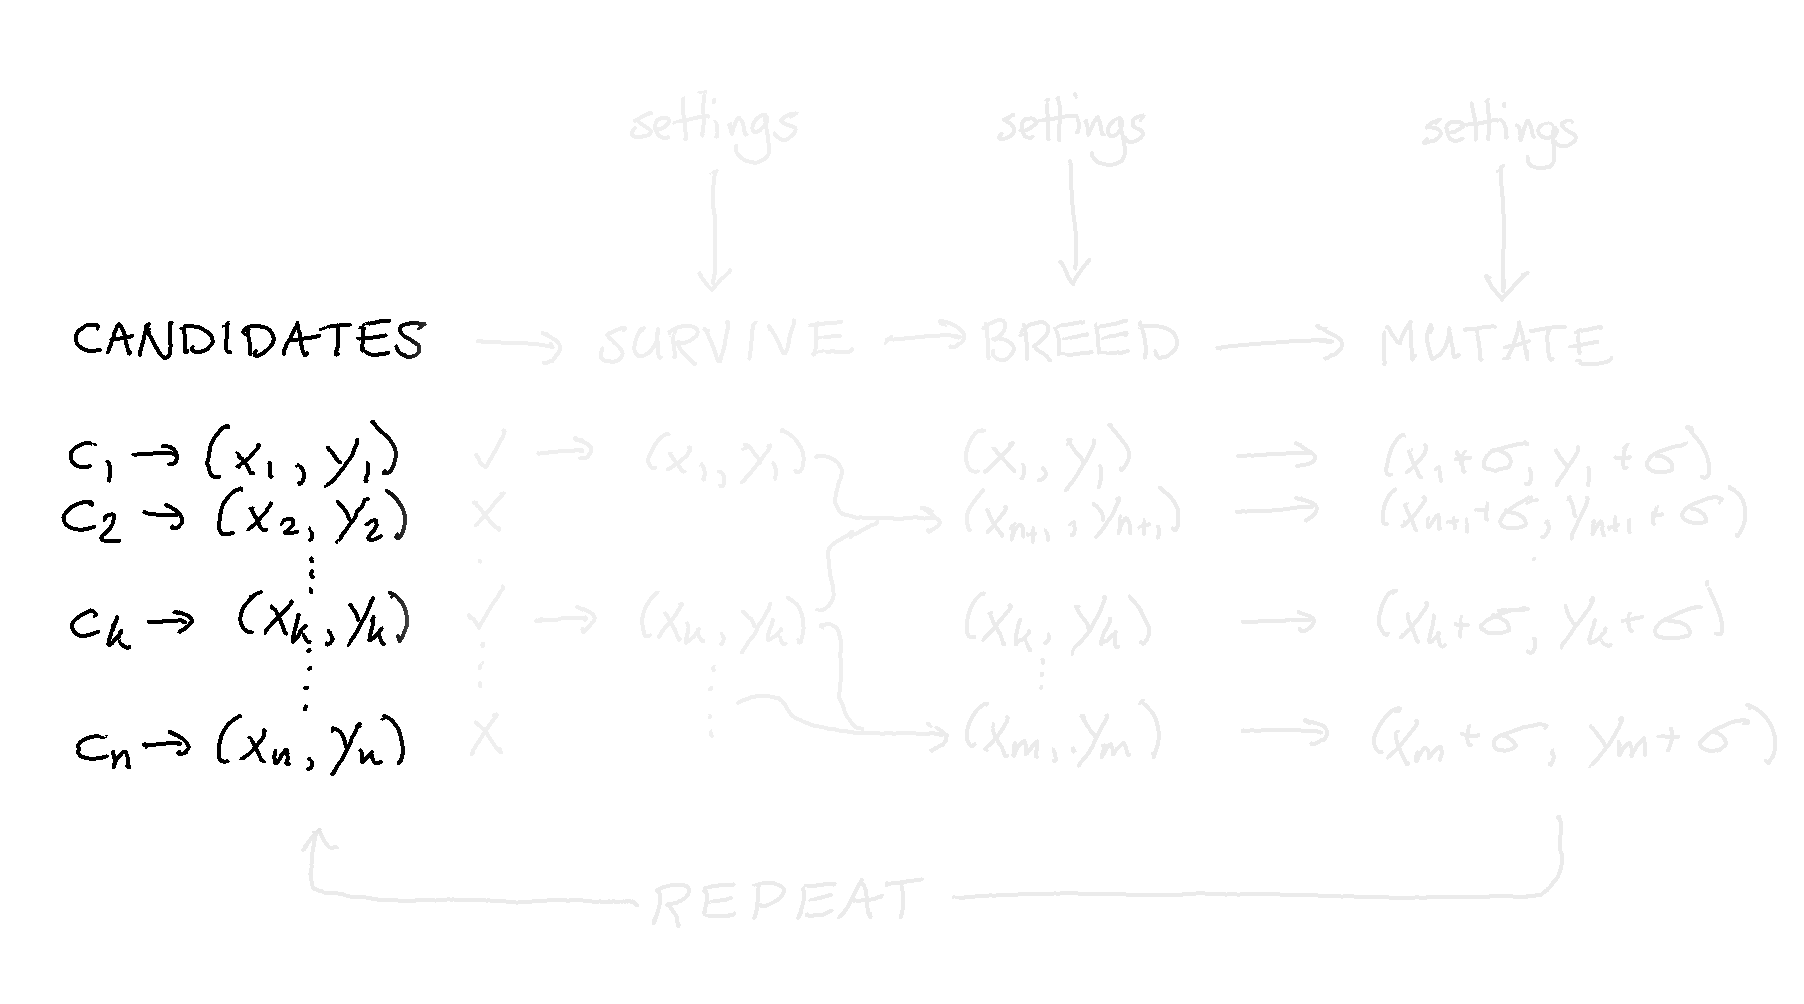 settings settings settings
CANDIDATES → SURVIVE → BREED → MUTATE
C₁ → (x₁, y₁) ✓ → (x₁, y₁) (x₁, y₁) → (x₁+σ, y₁+σ)
C₂ → (x₂, y₂) × (xₙ₊₁, yₙ₊₁) → (xₙ₊₁+σ, yₙ₊₁+σ)
Cₖ → (xₖ, yₖ) ✓ → (xₖ, yₖ) (xₖ, yₖ) → (xₖ+σ, yₖ+σ)
Cₙ → (xₙ, yₙ) × (xₘ, yₘ) → (xₘ+σ, yₘ+σ)
REPEAT